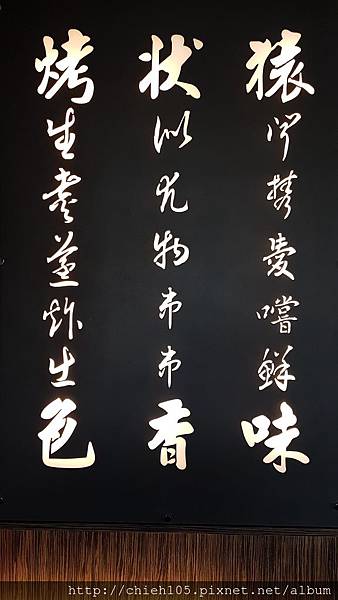 猿攜愛嚐鮮味
狀似尤物香
烤生煮蒸炸生色
http://chieh105.pixnet.net/album